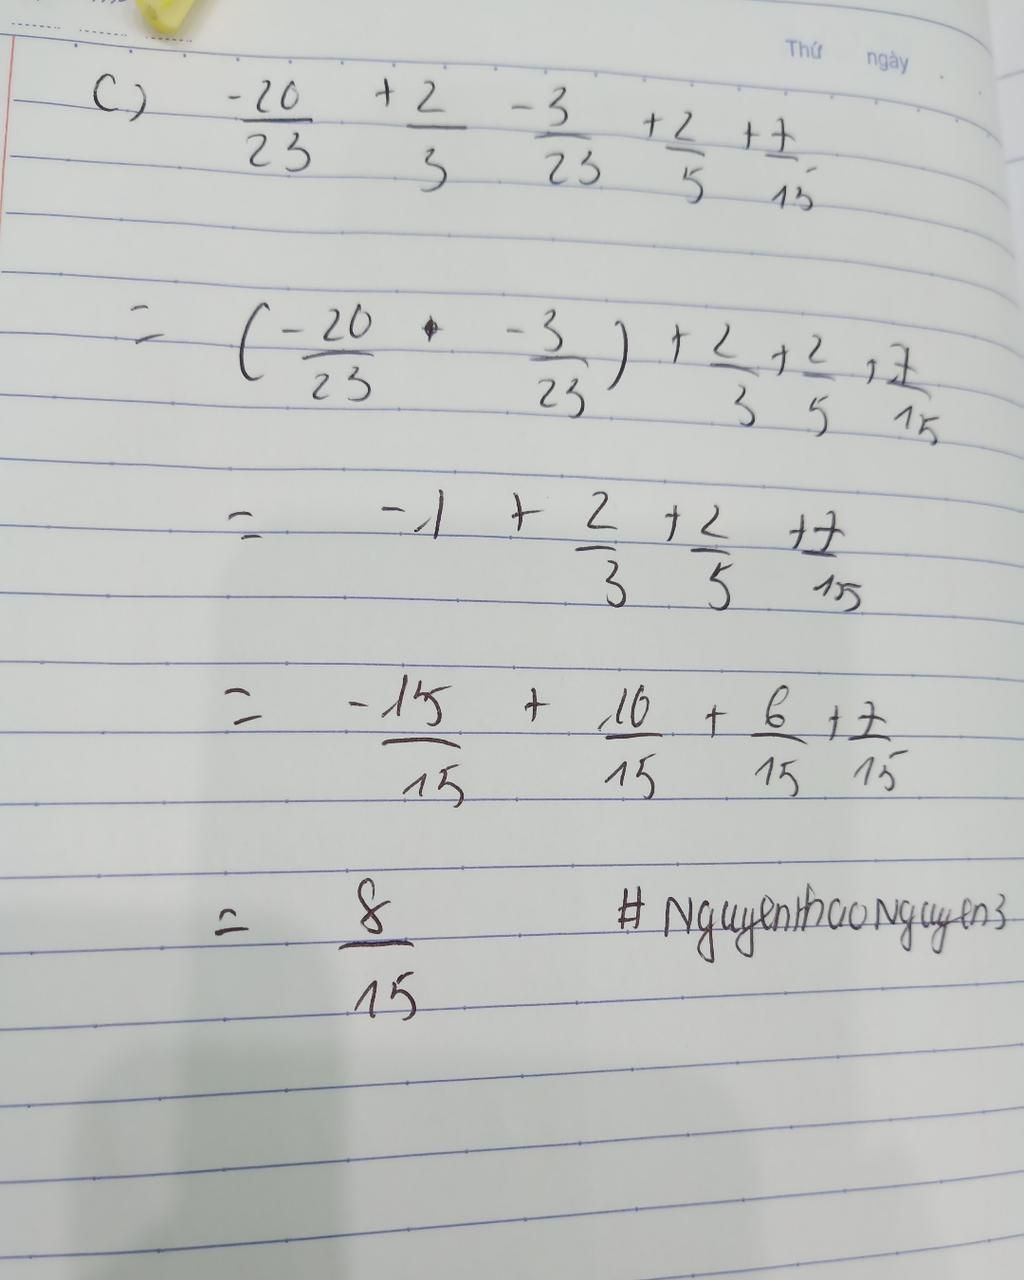 Thứ ngày
c) -20/23 + 2/3 - 3/23 + 2/5 + 7/15
= (-20/23 - 3/23) + 2/3 + 2/5 + 7/15
= -1 + 2/3 + 2/5 + 7/15
= -15/15 + 10/15 + 6/15 + 7/15
= 8/15 # NguyenthaoNguyen3